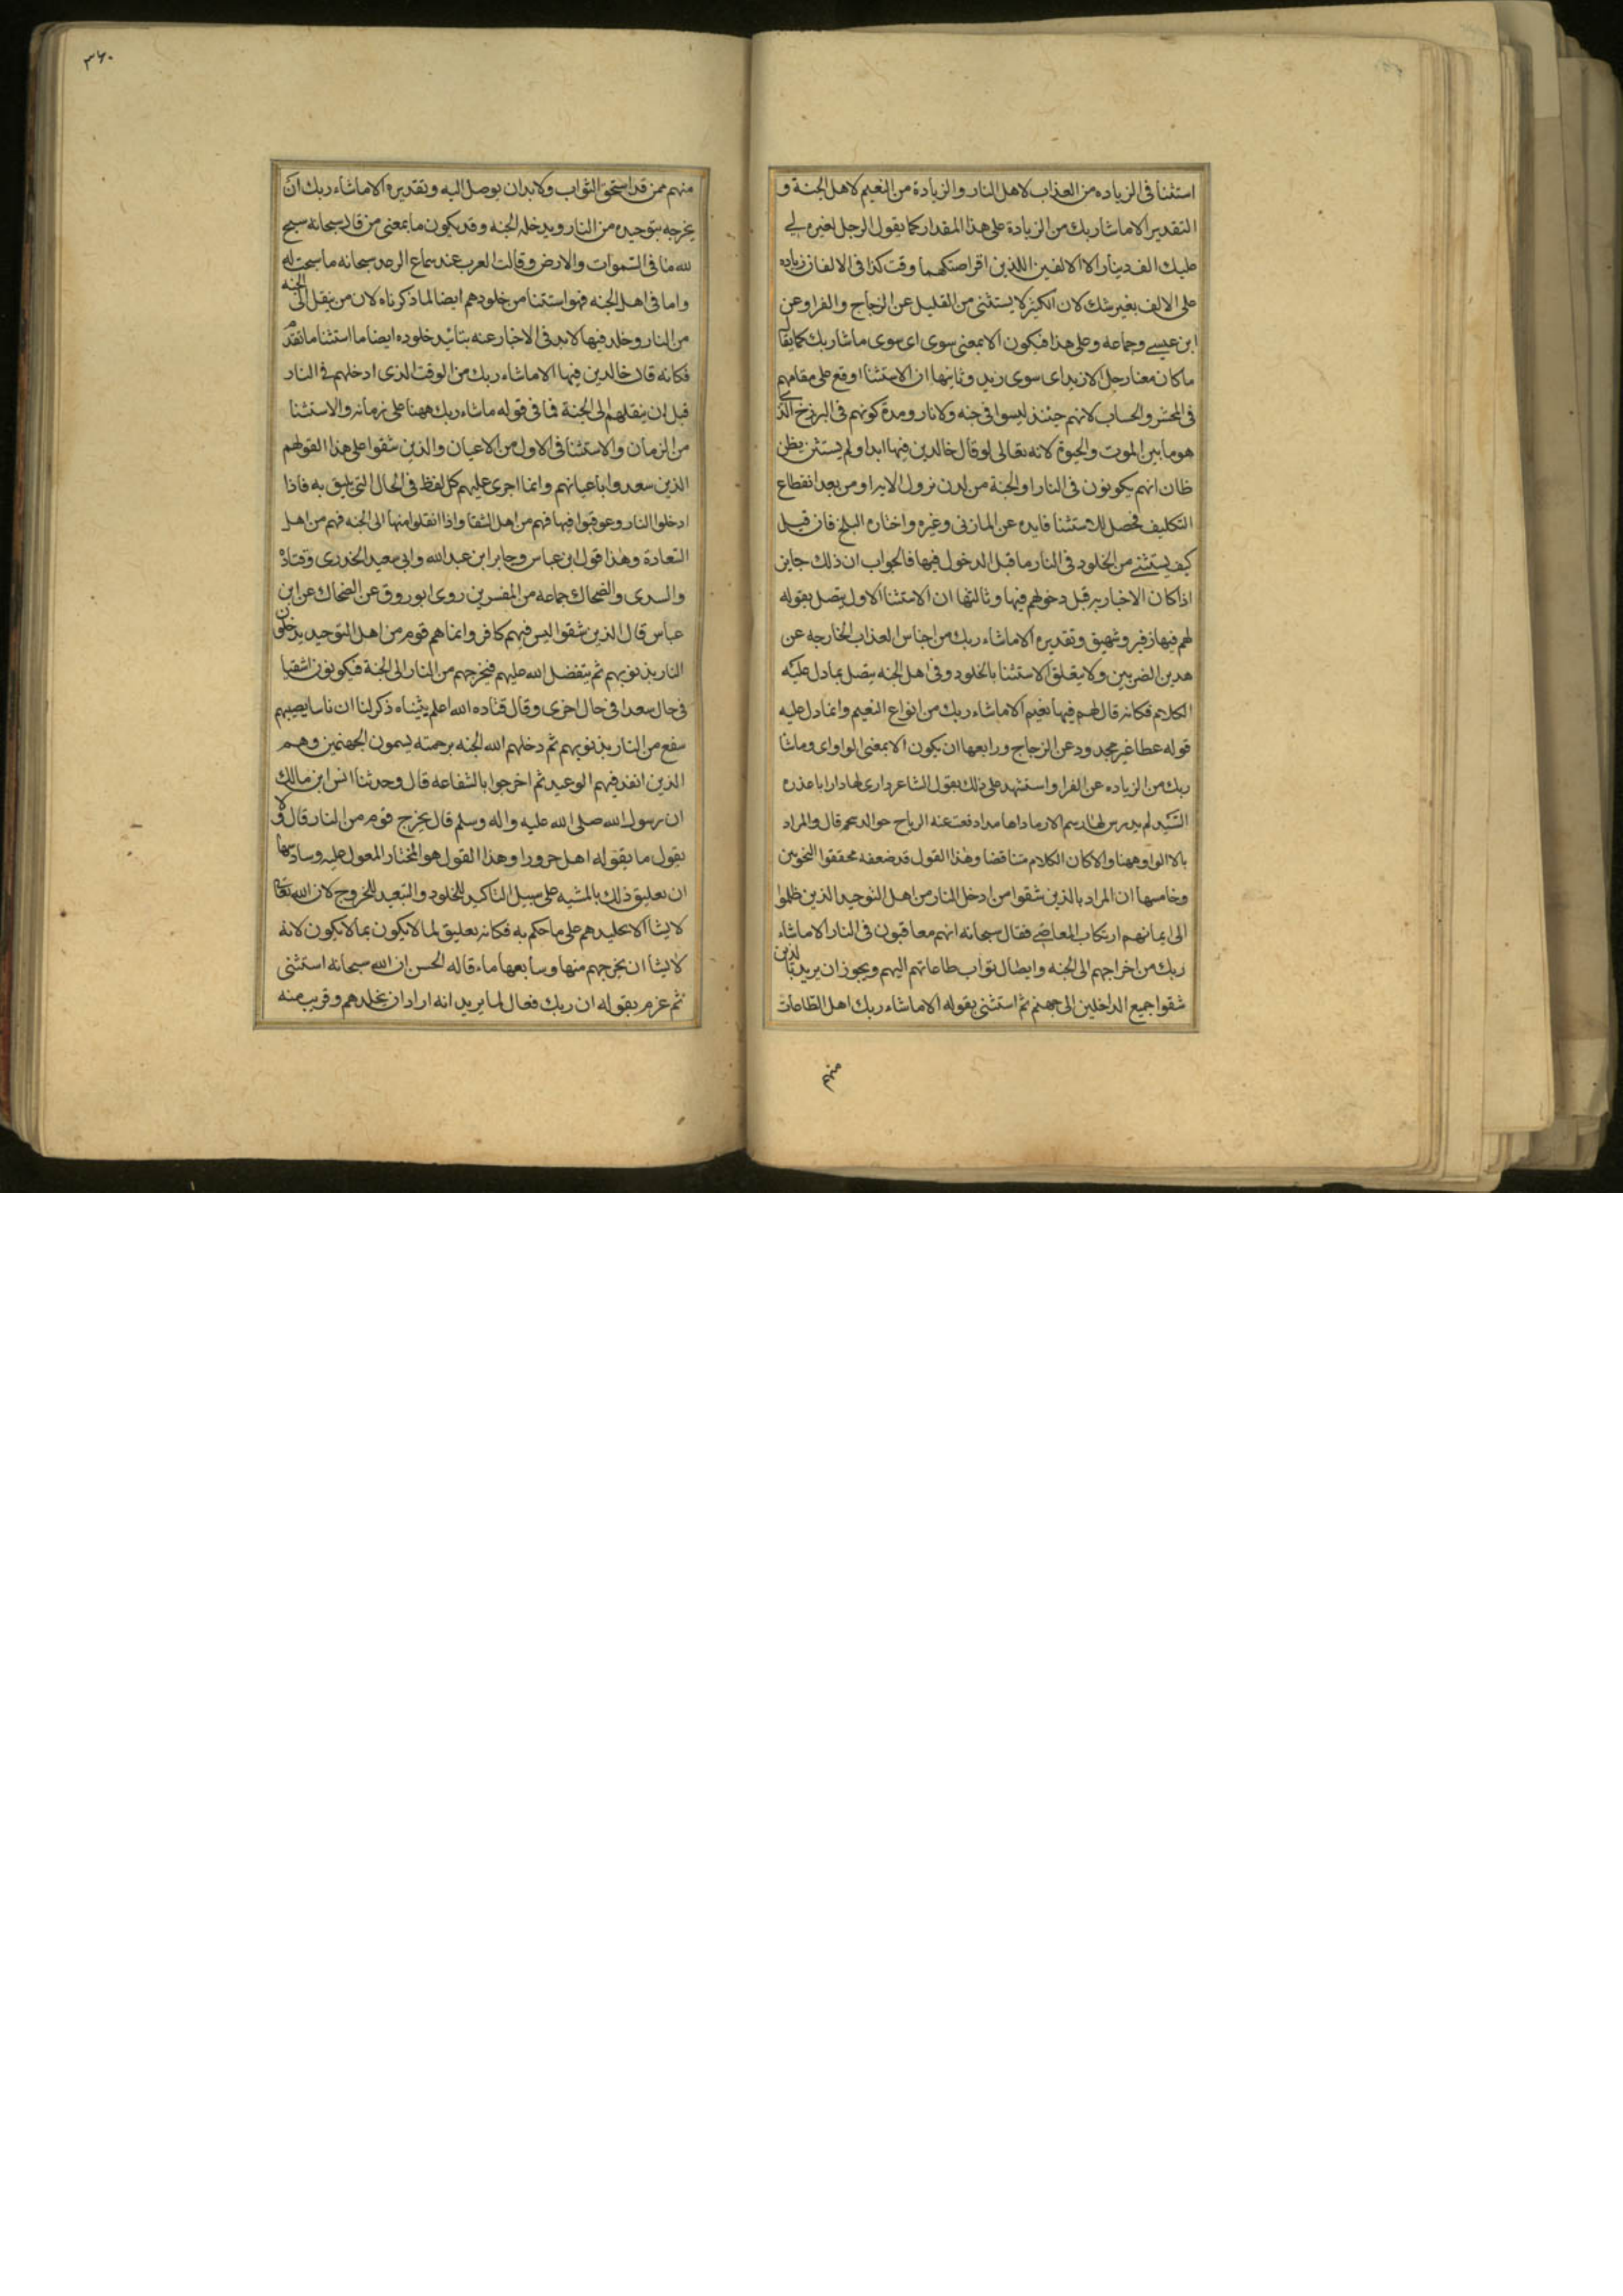 استثنا فى الزياده من العذاب لاهل النار والزيادة من النعيم لاهل الجنة و
التقدير الا ما شا ربك من الزيادة على هذا المقدار كما يقول الرجل لغيره لى
عليك الف دينار الا الالفين اللذين اقرضتكهما وقت كذا فى الالفان زياده
على الالف بغير شك لان الكثير لا يستثنى من القليل عن الزجاج والفرا وعن
ابن عيسے وجماعه وعلى هذا فيكون الا بمعنى سوى اى سوى ما شا ربك كما يقا
ما كان معنا رجل الا زيد اى سوى زيد وثانيها ان الاستثنا اوقع على مقامهم
فى المحشر والحساب لانهم حينئذ ليسوا فى جنه ولا نار ومدة كونهم فى البرزخ الذى
هو ما بين الموت والحيوة لانه تعالى لو قال خالدين فيها ابدا ولم يستثن يظن
ظان انهم يكونون فى النار او الجنة من لدن نزول الايه او من بعد انقطاع
التكليف فحصل للاستثنا فايده عن المازنى وغيره واختاره البلخے فان قيل
كيف يستثنے من الخلود فى النار ما قبل الدخول فيها فالجواب ان ذلك جايز
اذا كان الاخبار به قبل دخولهم فيها وثالثها ان الاستثنا الاول يتصل بقوله
لهم فيها زفير وشهيق وتقديره الا ما شاء ربك من اجناس العذاب الخارجه عن
هذين الضربين ولا يتعلق الاستثنا بالخلود وفى اهل الجنه يتصل بما دل عليه
الكلام فكانه قال لهم فيها نعيم الا ما شاء ربك من انواع النعيم وانما دل عليه
قوله عطا غير مجدود عن الزجاج ورابعها ان يكون الا بمعنى الواو اى وما شا
ربك من الزياده عن الفرا واستشهد على ذلك بقول الشاعر وارى لها دارا باغدره
السيدان لم يدرس لها رسم الا رمادا هامدا دفعت عنه الرياح خوالد سحم قال والمراد
بالا الواو ههنا والا كان الكلام متناقضا وهذا القول قد ضعفه محققوا النحويين
وخامسها ان المراد بالذين شقوا من ادخل النار من اهل التوحيد الذين ظلموا
الى ايمانهم ارتكاب المعاصے فقال سبحانه انهم معاقبون فى النار الا ما شاء
ربك من اخراجهم الى الجنه وايصال ثواب طاعاتهم اليهم ويجوز ان يريد بالذين
شقوا جميع الداخلين الى جهنم ثم استثنى بقوله الا ما شاء ربك اهل الطاعات
منهم
٣٦٠
منهم ممن قد استحق الثواب ولا بد ان يوصل اليه وتقديره الا ما شاء ربك ان
يخرجه بتوحيده من النار ويدخله الجنه وقد يكون ما بمعنى من قال سبحانه سبح
لله ما فى السموات والارض وقالت العرب عند سماع الرعد سبحانه ما سبحت له
واما فى اهل الجنه فهو استثنا من خلودهم ايضا لما ذكرناه لان من ينقل الى الجنه
من النار وخلد فيها لا بد فى الاخبار عنه بتابيد خلوده ايضا ما استثنا ما تقدم
فكانه قال خالدين فيها الا ما شاء ربك من الوقت الذى ادخلهم فى النار
قبل ان ينقلهم الى الجنة فما فى قوله ما شاء ربك ههنا على زمانه والاستثنا
من الزمان والاستثنا فى الاول من الاعيان والذين شقوا على هذا القول هم
الذين سعدوا باعيانهم وانما اجرى عليهم كل لفظ فى الحال التى يليق به فاذا
ادخلوا النار وعوقبوا فيها فهم من اهل الشقا واذا انقلوا منها الى الجنه فهم من اهل
السعادة وهذا قول ابن عباس وجابر ابن عبد الله وابى سعيد الخدرى وقتادة
والسدى والضحاك جماعه من المفسرين روى ابو روق عن الضحاك عن ابن
عباس قال الذين شقوا ليس فيهم كافر وانما هم قوم من اهل التوحيد يدخلون
النار بذنوبهم ثم يتفضل الله عليهم فيخرجهم من النار الى الجنة فيكونون اشقيا
فى حال سعدا فى حال اخرى وقال قتاده الله اعلم بثنياه ذكر لنا ان ناسا يصيبهم
سفع من النار بذنوبهم ثم دخلهم الله الجنه برحمته يسمون الجهنمين وهم
الذين انفذ فيهم الوعيد ثم اخرجوا بالشفاعه قال وحدثنا انس ابن مالك
ان رسول الله صلى الله عليه واله وسلم قال يخرج قوم من النار قال ولا
يقول ما يقوله اهل حرورا وهذا القول هو المختار المعول عليه وسادسها
ان تعليق ذلك بالمشيه على سبيل التاكيد للخلود والتبعيد للخروج لان الله تعالى
لا يشا الا تخليدهم على ما حكم به فكانه تعليق لما لا يكون بما لا يكون لانه
لا يشا ان يخرجهم منها وسابعها ماء قاله الحسن ان الله سبحانه استثنى
ثم عزم بقوله ان ربك فعال لما يريد انه اراد ان يخلدهم وقريب منه